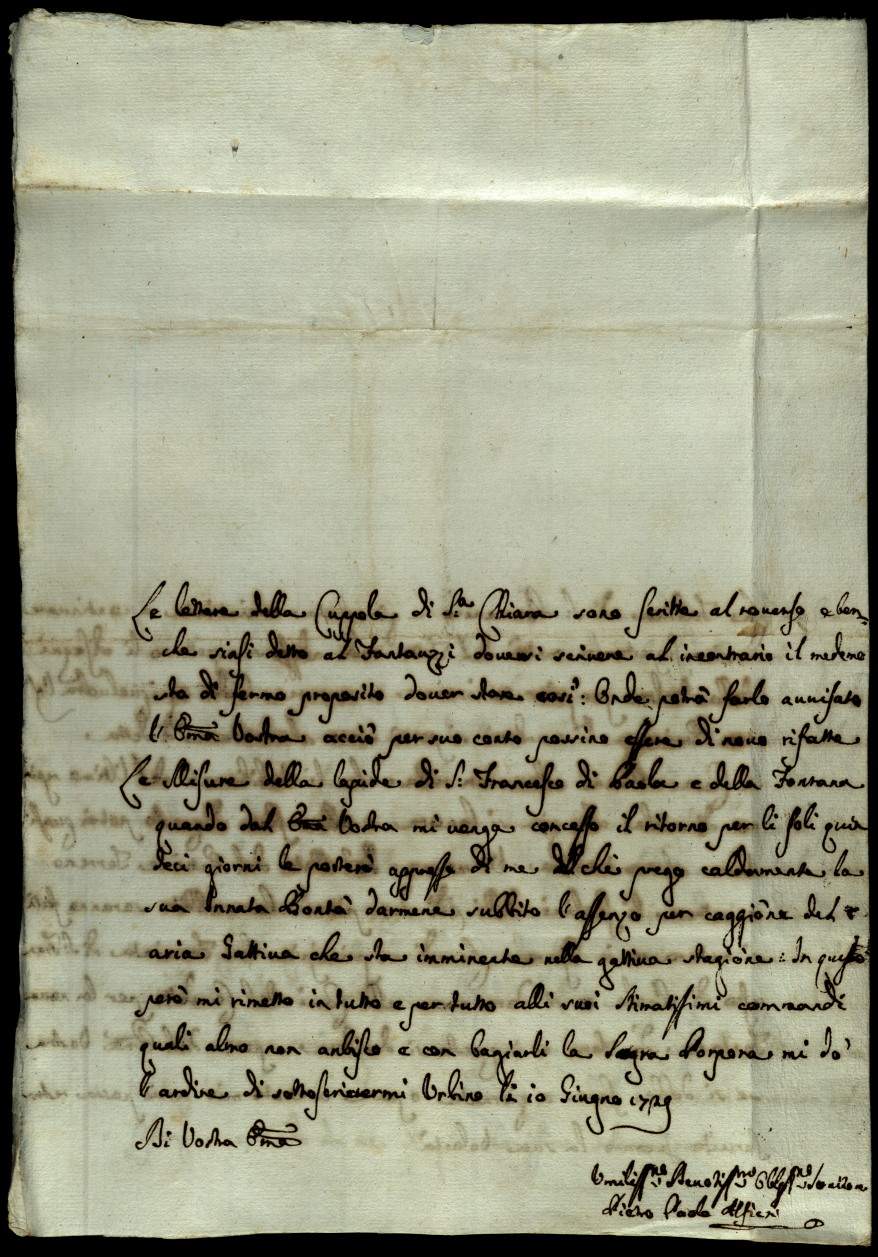 Le lettere della Cuppola di S.ta Chiara sono scritte al roverso e ben-
che siasi detto al Fantauzzi doversi scrivere al incontrario il medemo
sta di fermo proposito dover stare così: Onde potrà farlo auuisato
l'Em̃a Vostra acciò per suo conto possino essere di novo rifatte
Le Misure della lapide di S: Francesco di Paola e della Fontana
quando dal Em̃a Vostra mi venga concesso il ritorno per li soli quin
deci giorni le porterò appresso di me del che prego caldamente la
sua Innata Bontà darmene subbito l'assenzo per caggione del
aria Gattiua che sta imminente nella gattiua stagione: In questo
però mi rimetto in tutto e per tutto alli suoi stimatissimi commandi
quali altro non anbisco e con bagiarli la Sagra Porpora mi dò
l'ardire di sottoscrivermi Urbino li 10 Giugno 1729
Di Vostra Em̃a
Umiliss.mo Devotiss.mo Obligss.mo Servitore
Pietro Paolo Alfieri